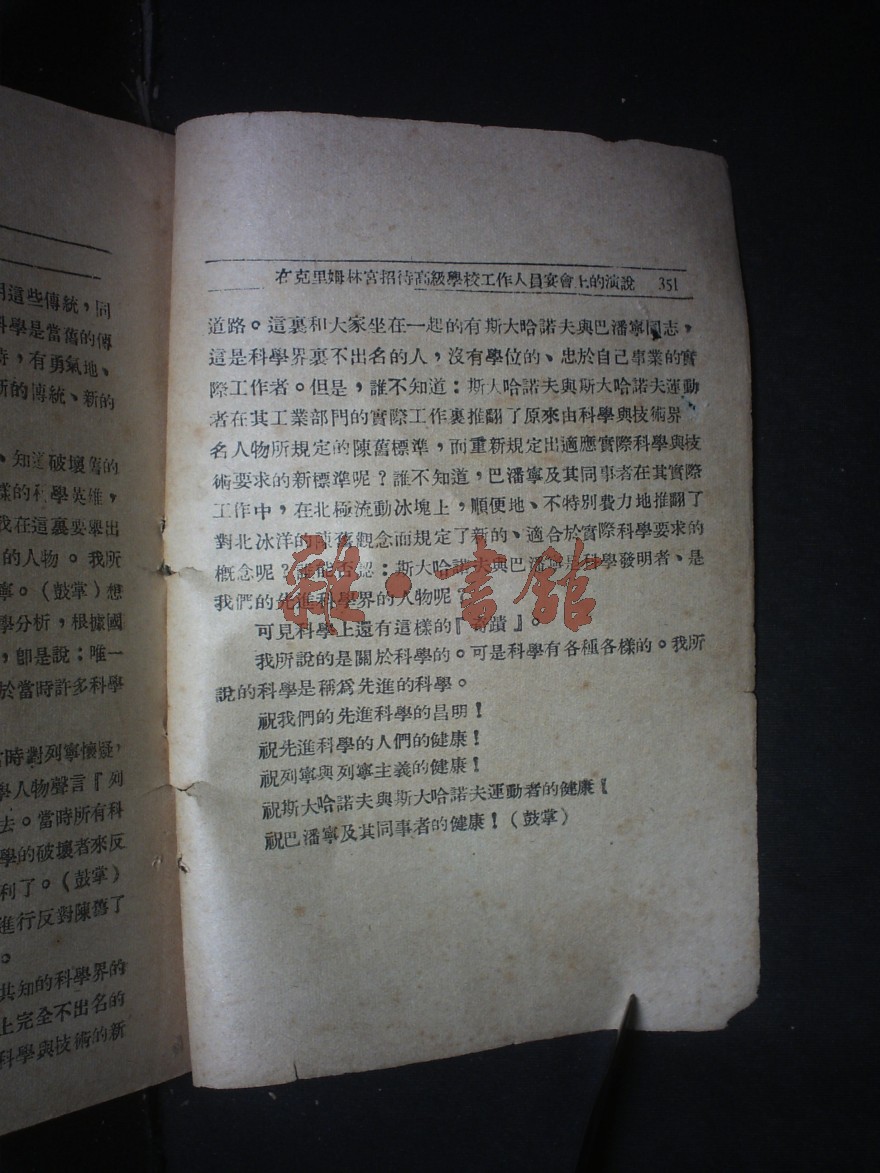 在克里姆林宮招待高級學校工作人員宴會上的演說 351
道路。這裏和大家坐在一起的有斯大哈諾夫與巴潘寧同志，
這是科學界裏不出名的人，沒有學位的、忠於自己事業的實
際工作者。但是，誰不知道：斯大哈諾夫與斯大哈諾夫運動
者在其工業部門的實際工作裏推翻了原來由科學與技術界
名人物所規定的陳舊標準，而重新規定出適應實際科學與技
術要求的新標準呢？誰不知道，巴潘寧及其同事者在其實際
工作中，在北極流動冰塊上，順便地、不特別費力地推翻了
對北冰洋的陳舊觀念而規定了新的、適合於實際科學要求的
概念呢？誰能否認：斯大哈諾夫與巴潘寧是科學發明者、是
我們的先進科學界的人物呢？
可見科學上還有這樣的『奇蹟』。
我所說的是關於科學的。可是科學有各種各樣的。我所
說的科學是稱爲先進的科學。
祝我們的先進科學的昌明！
祝先進科學的人們的健康！
祝列寧與列寧主義的健康！
祝斯大哈諾夫與斯大哈諾夫運動者的健康！
祝巴潘寧及其同事者的健康！（鼓掌）
雜·書館
用這些傳統，同
科學是當舊的傳
時，有勇氣地、
新的傳統、新的
、知道破壞舊的
樣的科學英雄，
我在這裏要舉出
的人物。我所
寧。（鼓掌）想
學分析，根據國
，卽是說：唯一
於當時許多科學
時對列寧懷疑，
學人物聲言『列
去。當時所有科
學的破壞者來反
利了。（鼓掌）
進行反對陳舊了
。
共知的科學界的
上完全不出名的
科學與技術的新